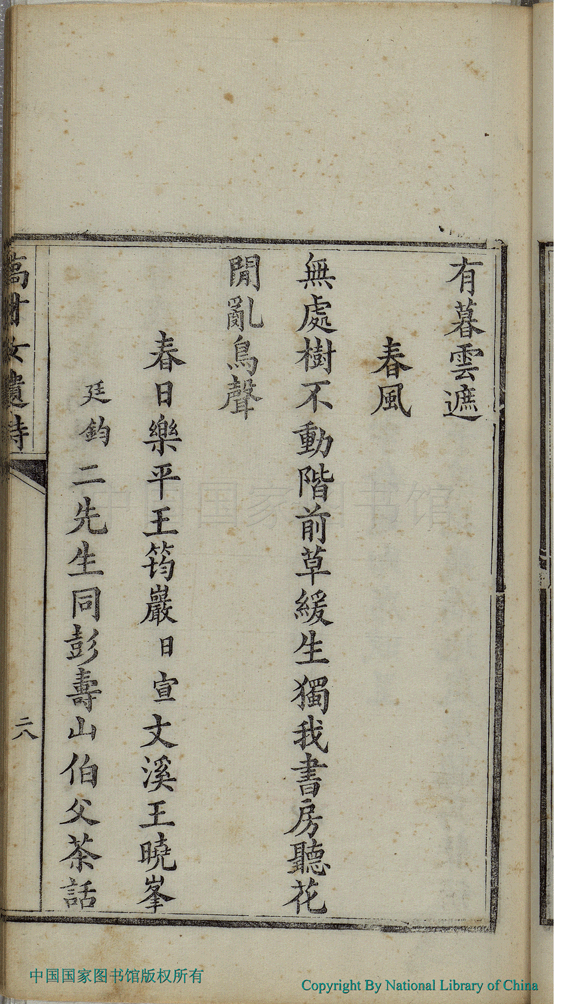 有暮雲遮
春風
無處樹不動階前草緩生獨我書房聽花
閒亂鳥聲
春日樂平王筠巖日宣文溪王曉峯
廷鈞二先生同彭壽山伯父茶話
女遺詩
二八
中国国家图书馆
中国国家图书馆版权所有
Copyright By National Library of China